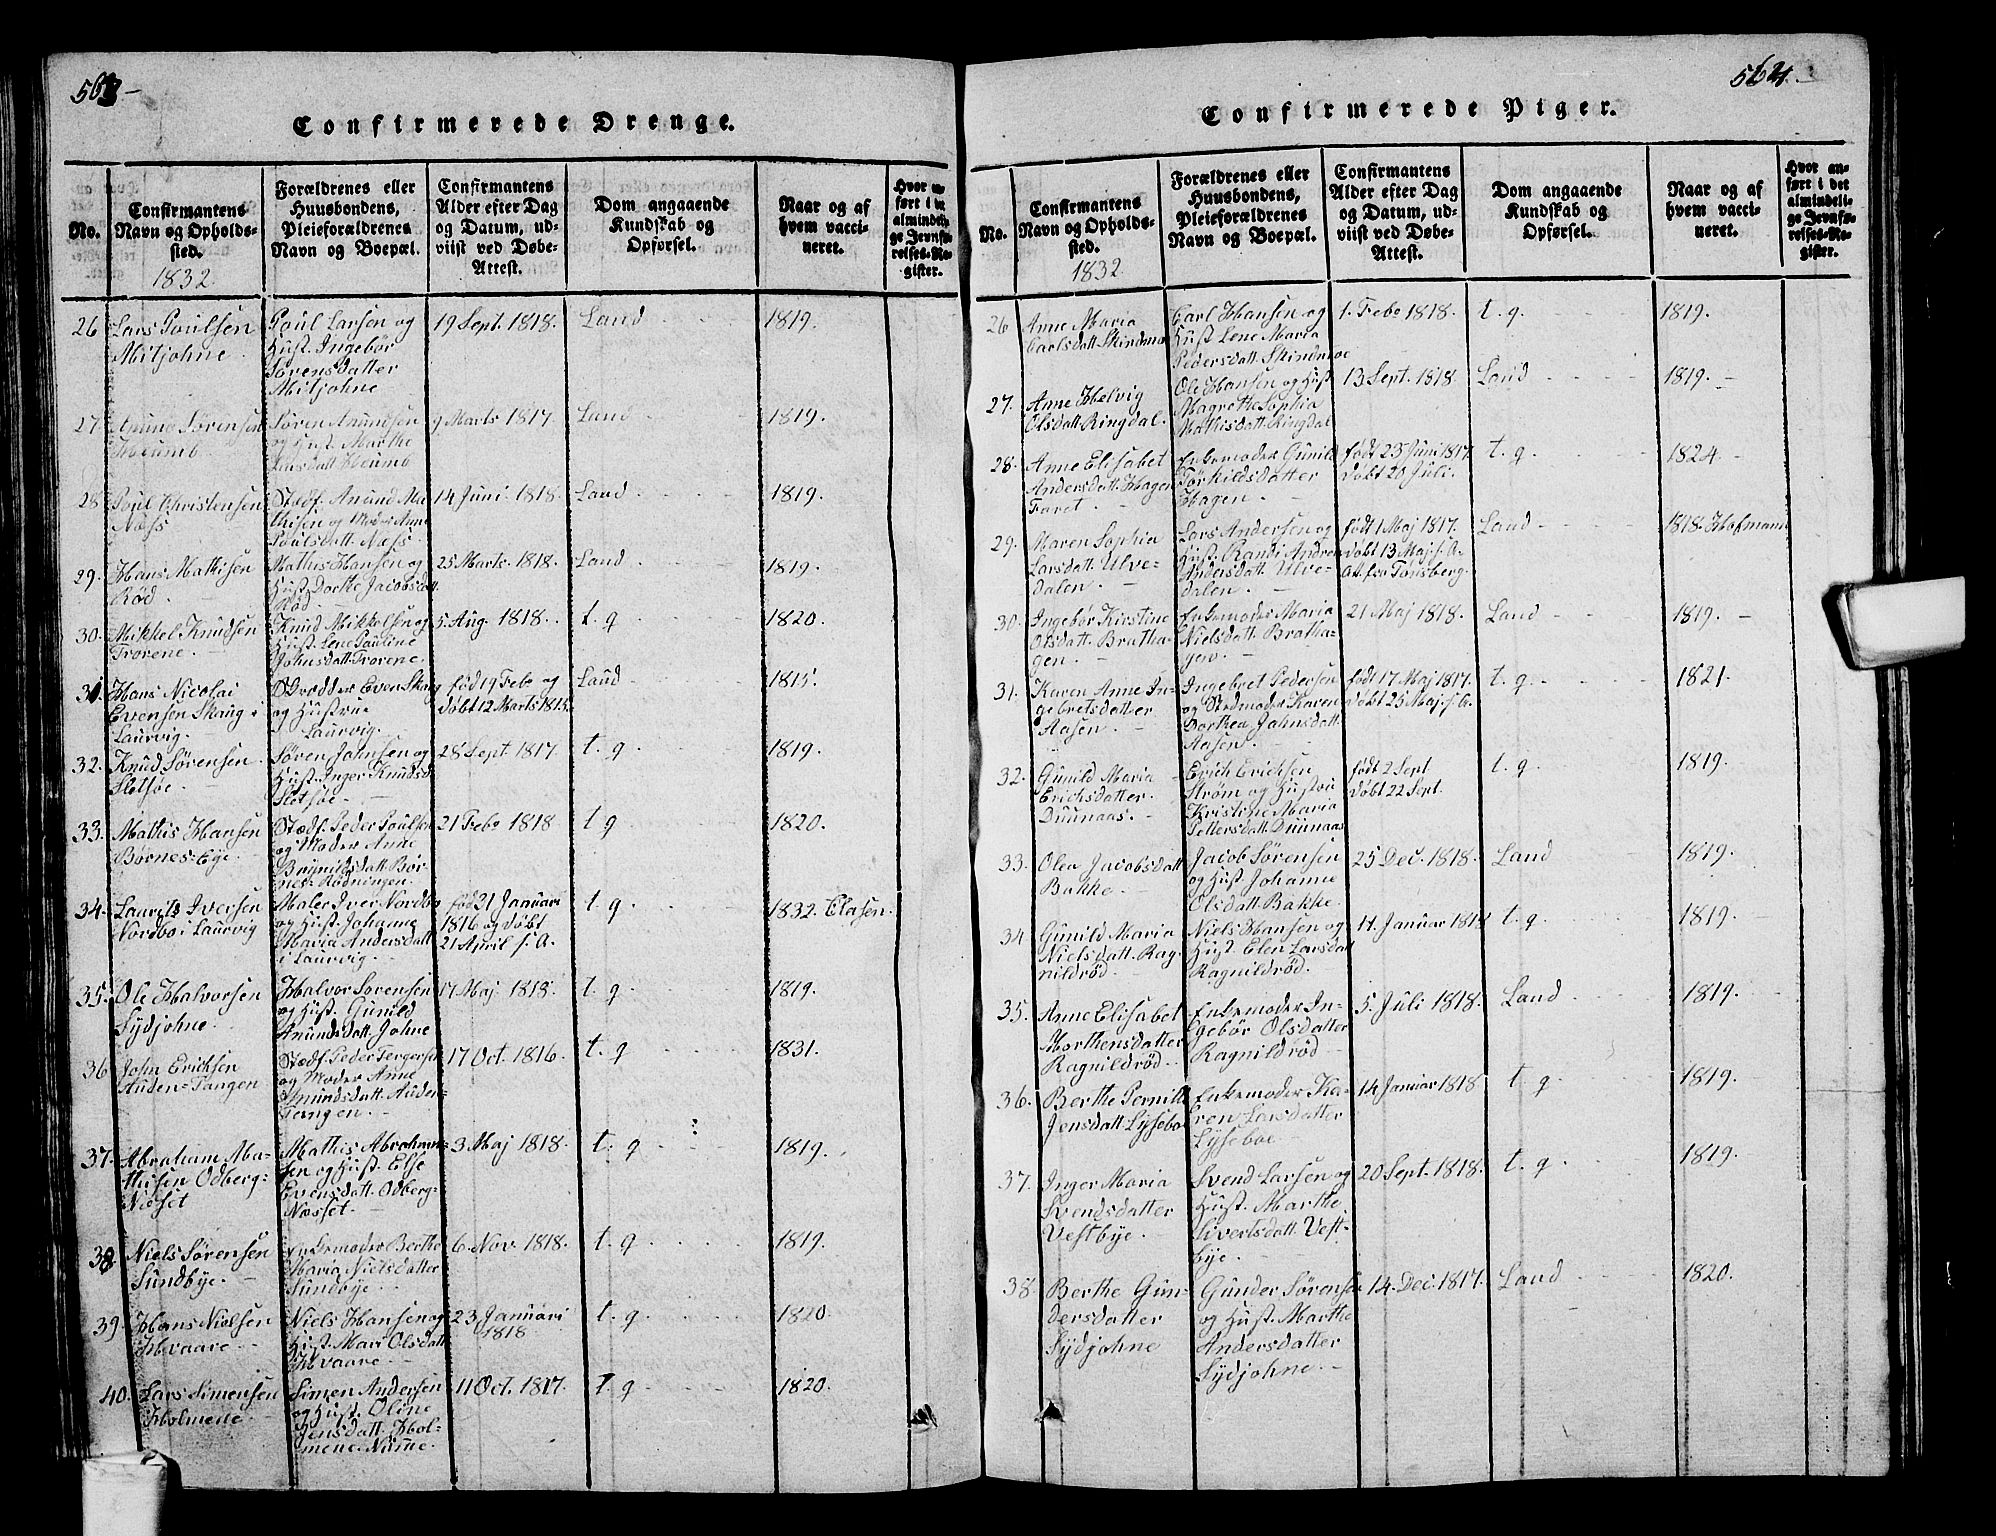 563 –
Confirmerede Drenge.
No.
Confirmantens
Navn og Opholds-
sted.
1832
Forældrenes eller
Huusbondens,
Pleieforældrenes
Navn og Boepæl.
Confirmantens
Alder efter Dag
og Datum, ud-
viist ved Døbe-
Attest.
Dom angaaende
Kundskab og
Opførsel.
Naar og af
hvem vacci-
neret.
Hvor an-
ført i det
almindeli-
ge Jevnfø-
relses-Re-
gister.
26 Lars Poulsen
Mitjohne
Poul Larsen og
Hust. Ingebør
Sørensdatter
Mitjohne
19 Sept. 1818. Land 1819.
27 Anund Sørensen
Heumb
Søren Anundsen
og Hust. Marthe
Larsdatt. Heumb
9 Marts 1817. Land 1819.
28 Poul Christensen
Næss
Stedf. Anund Ma-
thisen og Moder Anne
Poulsdatt. Næss.
14 Juni 1818. Land 1819.
29. Hans Mathisen
Rød.
Mathis Hansen og
Hust. Dorthe Jacobsdatt.
Rød.
25 Marts. 1818. Land 1819.
30. Mikkel Knudsen
Trorene.
Knud Mikkelsen og
Hust. Lene Pauline
Johnsdatt. Trorene.
5 Aug. 1818. t. g 1820.
31. Hans Nicolai
Evensen Skaug i
Laurvig.
Even Skaug
og Hustrue
Laurvig.
fød 19 Febr og
døbt 12 Marts 1815. Land 1815.
32. Knud Sørensen
Slotsøe.
Søren Johnsen og
Hust. Inger Knudsd
Slotsøe.
28 Sept. 1817. t. g 1819.
33. Mathis Hansen
Børnes-Eye.
Stedf. Peder Poulsen
og Moder Anne
Brynildsdatt. Bør-
nes-Rødningen.
21 Febr 1818 t g 1820.
34. Laurits Iversen
Nordbo i Laurvig
Maler Iver Nordbo
og Hust. Johanne
Maria Andersdatt.
i Laurvig.
fød 21 Januari
1816 og døbt
21 April s. A.
t. g 1832. Clasen.
35. Ole Halvorsen
Sydjohne.
Halvor Sørensen
og Hust. Gunild
Anundsdatt. Johne
17 Maj. 1818. t. g 1819.
36 John Ericksen
Auden-Tangen
Stedf. Peder Tergersen
og Moder Anne
Amundsdatt. Auden-
Tangen.
17 Oct. 1816. t. g 1831.
37. Abraham Ma-
thisen Odberg-
Næset
Mathis Abraham-
sen og Hust. Else
Evensdatt. Odberg-
Næsset.
3 Maj 1818. t. g 1819.
38 Niels Sørensen
Sundbye.
Enkemoder Berthe
Maria Nielsdatter
Sundbye.
6 Nov. 1818. t. g 1819.
39 Hans Nielsen
Hvaare
Niels Hansen og
Hust. Mari Olsdatt
Hvaare
23 Januari
1818
t. g 1820
40. Lars Simensen
Holmene.
Simen Andersen
og Hust. Oline
Jensdatt. Hol-
mene Numme.
11 Oct. 1817. t. g 1820.
564. –
Confirmerede Piger.
No.
Confirmantens
Navn og Opholds-
sted.
1832
Forældrenes eller
Huusbondens,
Pleieforældrenes
Navn og Boepæl.
Confirmantens
Alder efter Dag
og Datum, ud-
viist ved Døbe-
Attest.
Dom angaaende
Kundskab og
Opførsel.
Naar og af
hvem vacci-
neret.
Hvor an-
ført i det
almindeli-
ge Jevnfø-
relses-Re-
gister.
26 Anne Maria
Carlsdatt. Skindmo
Carl Hansen og
Hust. Lene Maria
Pedersdatt. Skindmoe
1. Febr 1818. t. g. 1819.
27. Anne Helvig
Olsdatt. Ringdal.
Ole Hansen og Hust
Magrethe Sophia
Mathisdatt. Ringdal
13 Sept. 1818 Land 1819.
28. Anne Elisabet
Andersdatt. Hagen
Faret.
Enkemoder Gunild
Tørkildsdatter
Hagen.
født 23 Juni 1817
døbt 20 Juli.
t. g. 1824
29. Maren Sophia
Larsdatt. Ulve-
dalen.
Lars Andersen og
Hust. Randi Andrea
Andersdatt. Ulve-
dalen.
født 1 Maj 1817.
døbt 13 Maj s. A.
At. fra Tønsberg.
Land 1818. Hofmann
30. Ingebør Kirstine
Olsdatt. Bratha-
gen.
Enkemoder Maria
Nielsdatt. Bratha-
gen.
21 Maj 1818. Land 1819.
31. Karen Anne In-
gebretsdatter
Aasen.
Ingebret Pedersen
og Stedmoder Karen
Dorthea Johnsdatt.
Aasen.
født 17 Maj 1817.
døbt 25 Maj. s. A.
t. g 1821.
32. Gunild Maria
Erichsdatter.
Duunaas.
Erich Erichsen
Strøm og Hustru
Kristine Maria
Pettersdatt. Duunaas
født 2 Sept
døbt 22 Sept.
t. g 1819.
33. Olea Jacobsdatt
Bakke.
Jacob Sørensen
og Hust. Johanne
Olsdatt. Bakke.
25 Dec. 1818. Land 1819.
34 Gunild Maria
Nielsdatt. Rag-
nildrød.
Niels Hansen og
Hust. Elen Larsdatt
Ragnildrød.
11. Januar 1818 t. g 1819.
35. Anne Elisabet
Morthensdatter
Ragnildrød
Enkemoder In-
gebør Olsdatter
Ragnildrød
5. Juli 1818. Land 1819.
36. Berthe Pernill
Jensdatt. Lysebo
Enkemoder Ka-
ren Larsdatter
Lyseboe
14 Januar 1818 t g 1819.
37. Inger Maria
Svendsdatter
Vestbye.
Svend Larsen og
Hust. Marthe
Sivertsdatt. Vest-
bye.
20 Sept. 1818. t. g 1819.
38 Berthe Gun-
dersdatter
Sydjohne
Gunder Sørensen
og Hust. Marthe
Andersdatter
Sydjohne.
14. Dec. 1817. Land 1820.